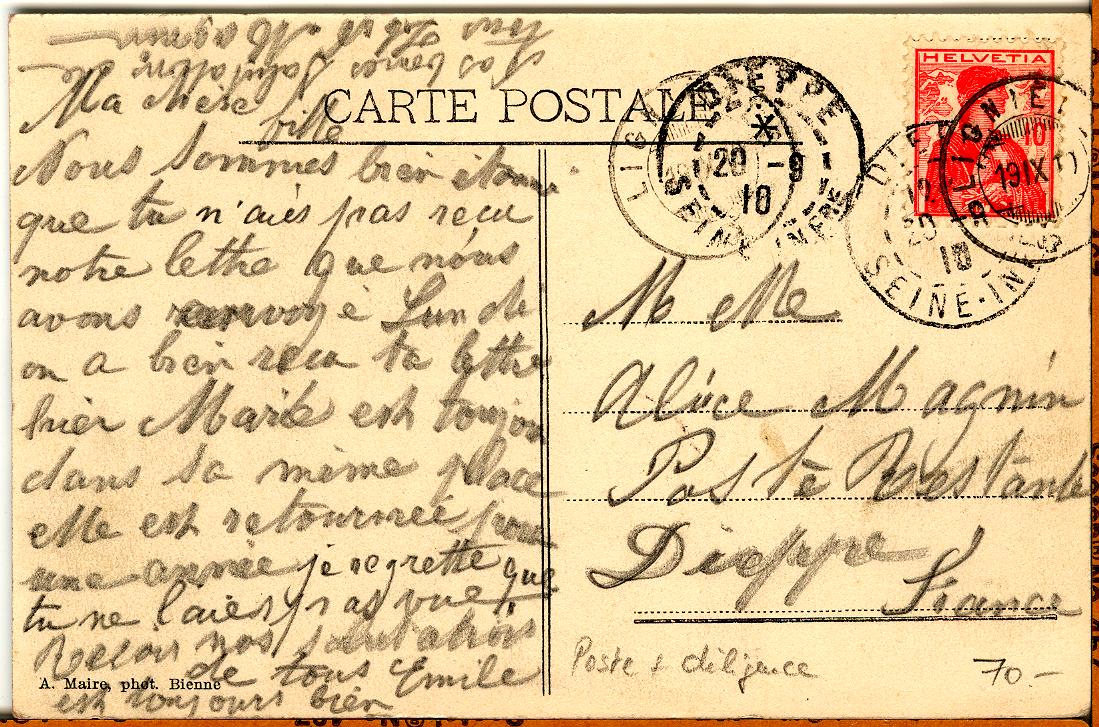 CARTE POSTALE
HELVETIA
10
LIGNIÈRES
19 IX
10
DIEPPE
20 -9
10
SEINE-INFRE
DIEPPE
20
10
SEINE-IN
LIGN
Ma chère
ville
Nous sommes bien
que tu n'aies pas reçu
notre lettre que nous
avons Lundi
on a bien reçu ta lettre
hier Marie est toujou
dans sa même place
elle est retournée pour
une année je regrette que
tu ne l'aies pas vue
Reçois nos salutations
de tous Emile
est toujours bien
A. Maire, phot. Bienne
M Mlle
Alice Magnin
Poste Restante
Dieppe
France
Poste + diligence
70.-